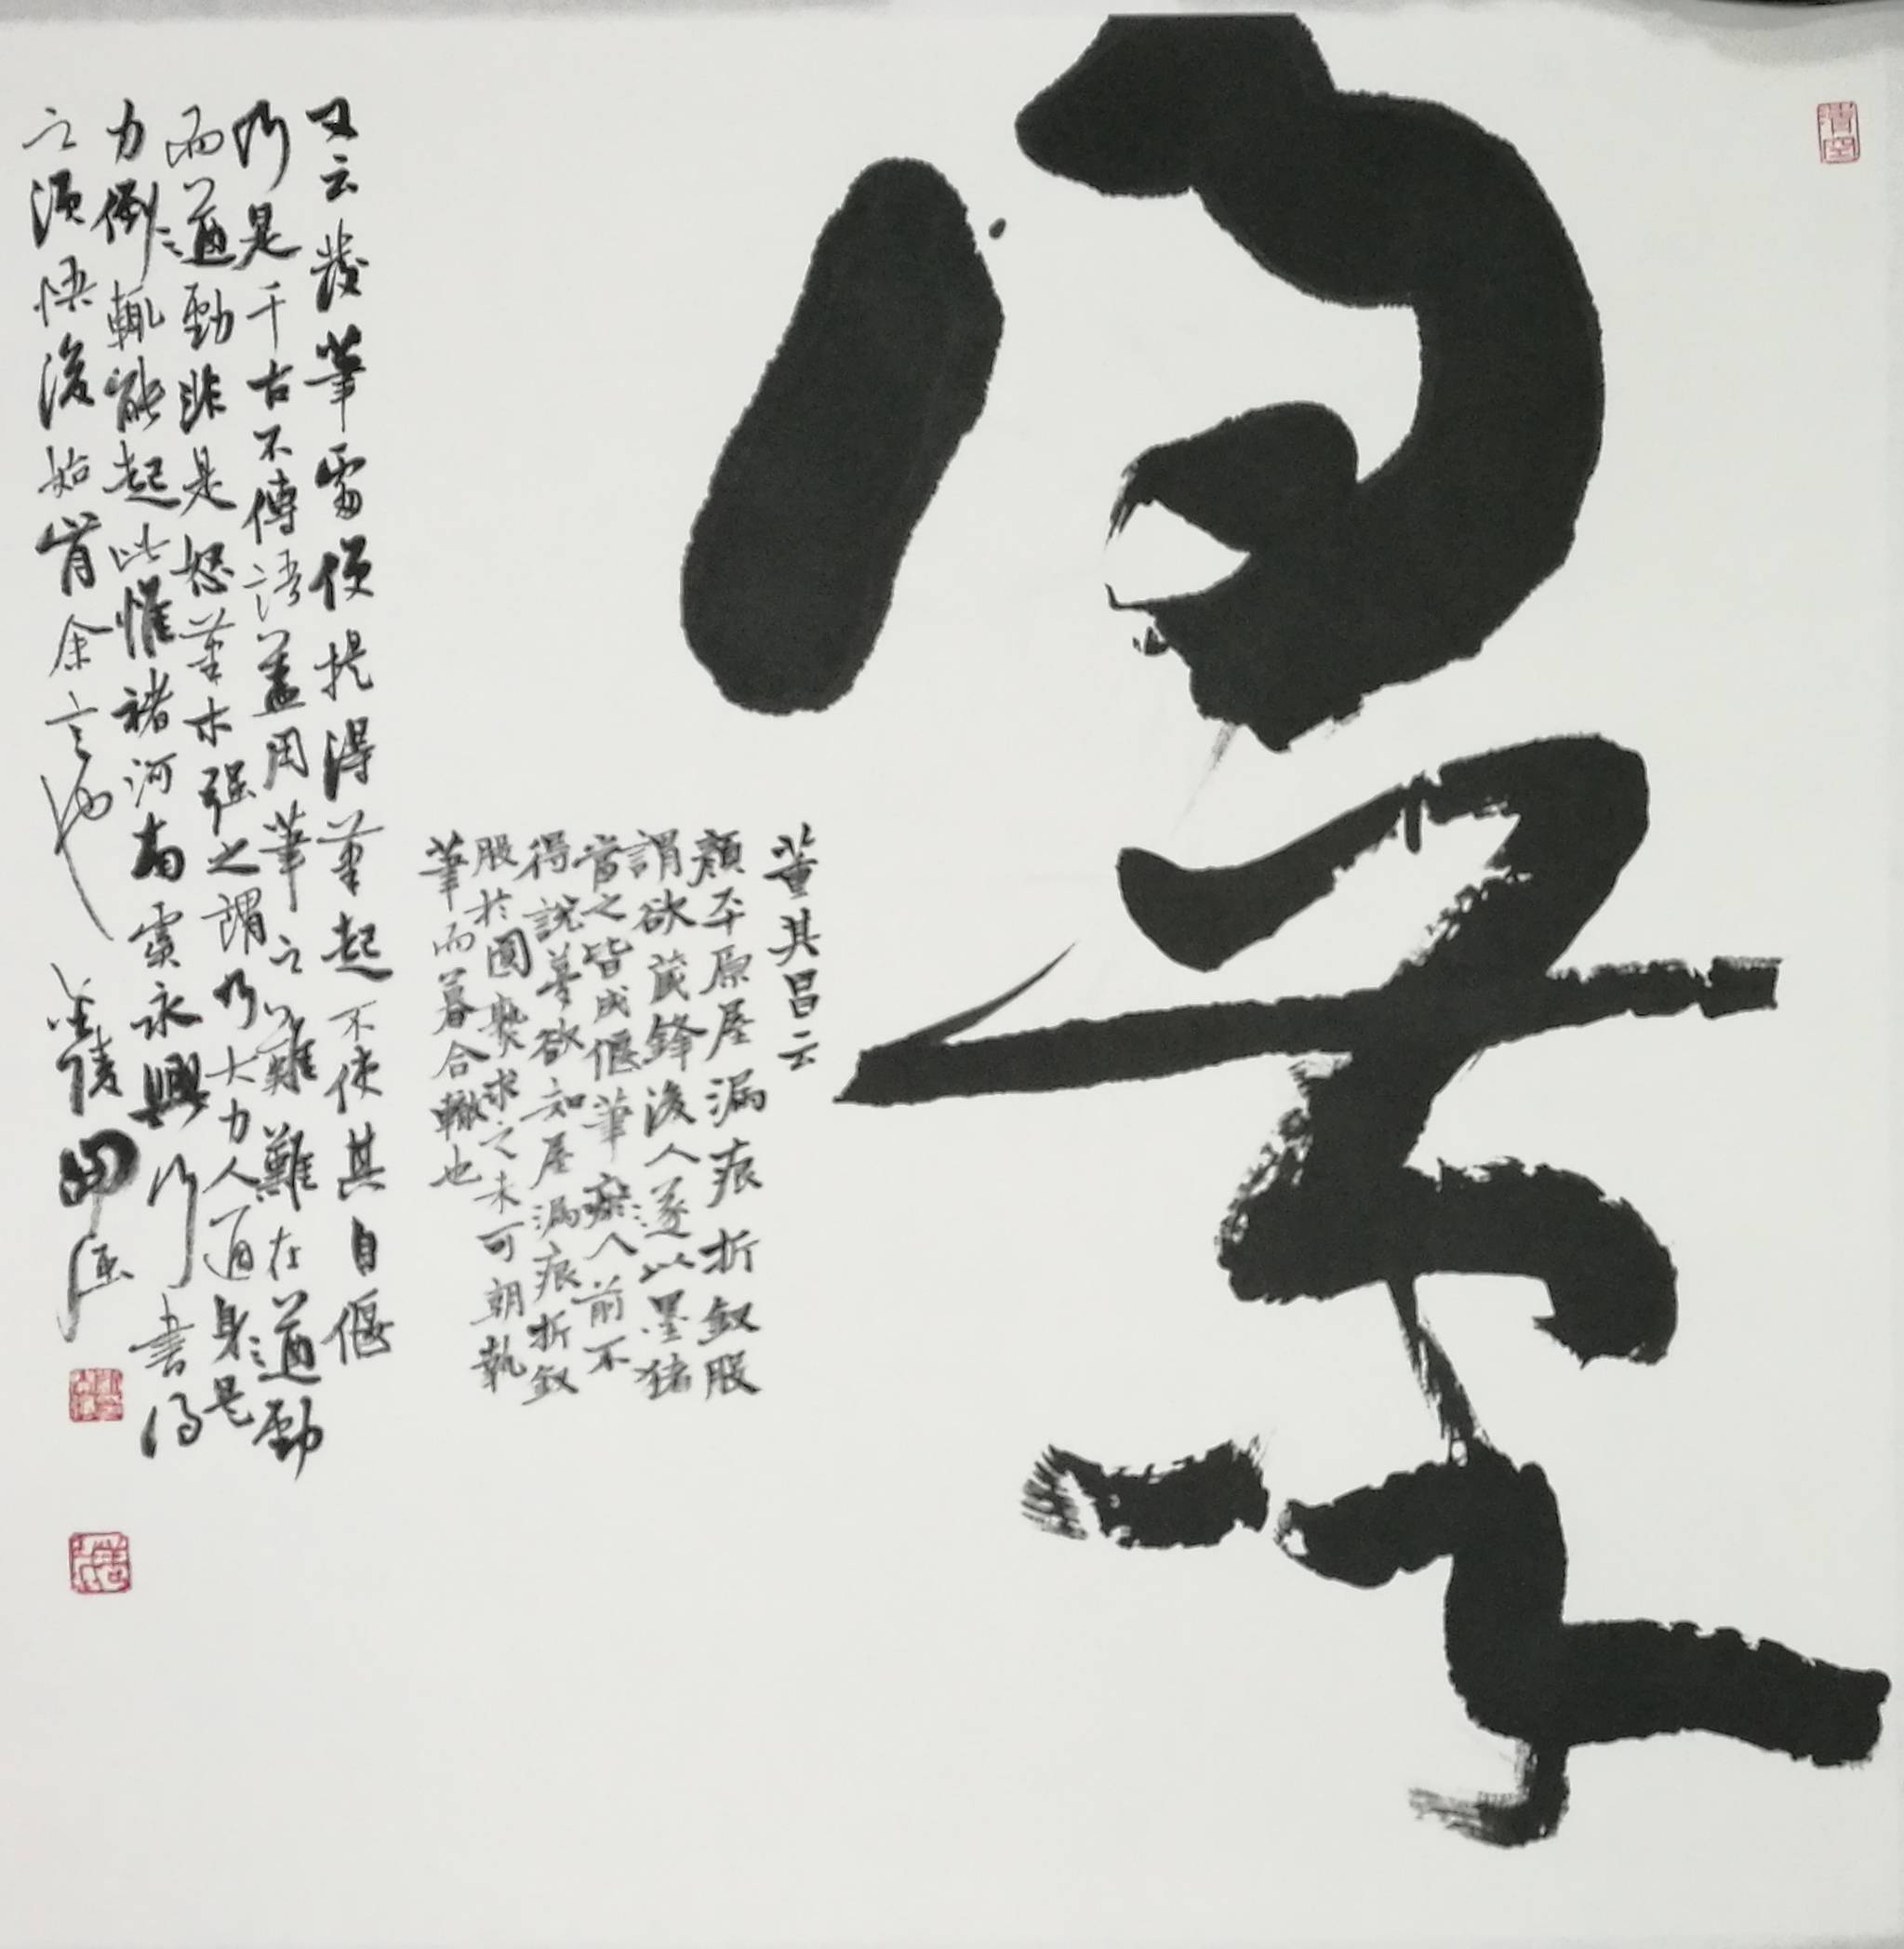 董其昌云
顏平原屋漏痕折釵股
謂欲藏鋒後人遂以墨猪
當之皆成偃筆癡人前不
得說夢欲知屋漏痕折釵
股於圓熟求之未可朝執
筆而暮合轍也
又云發筆處便提得筆起不使其自偃
乃是千古不傳語蓋用筆之難難在遒勁
而遒勁非是怒筆木强之謂乃大力人通身是
力倒輒能起此惟褚河南虞永興行書得
之須悟後始肯余言也 金陵